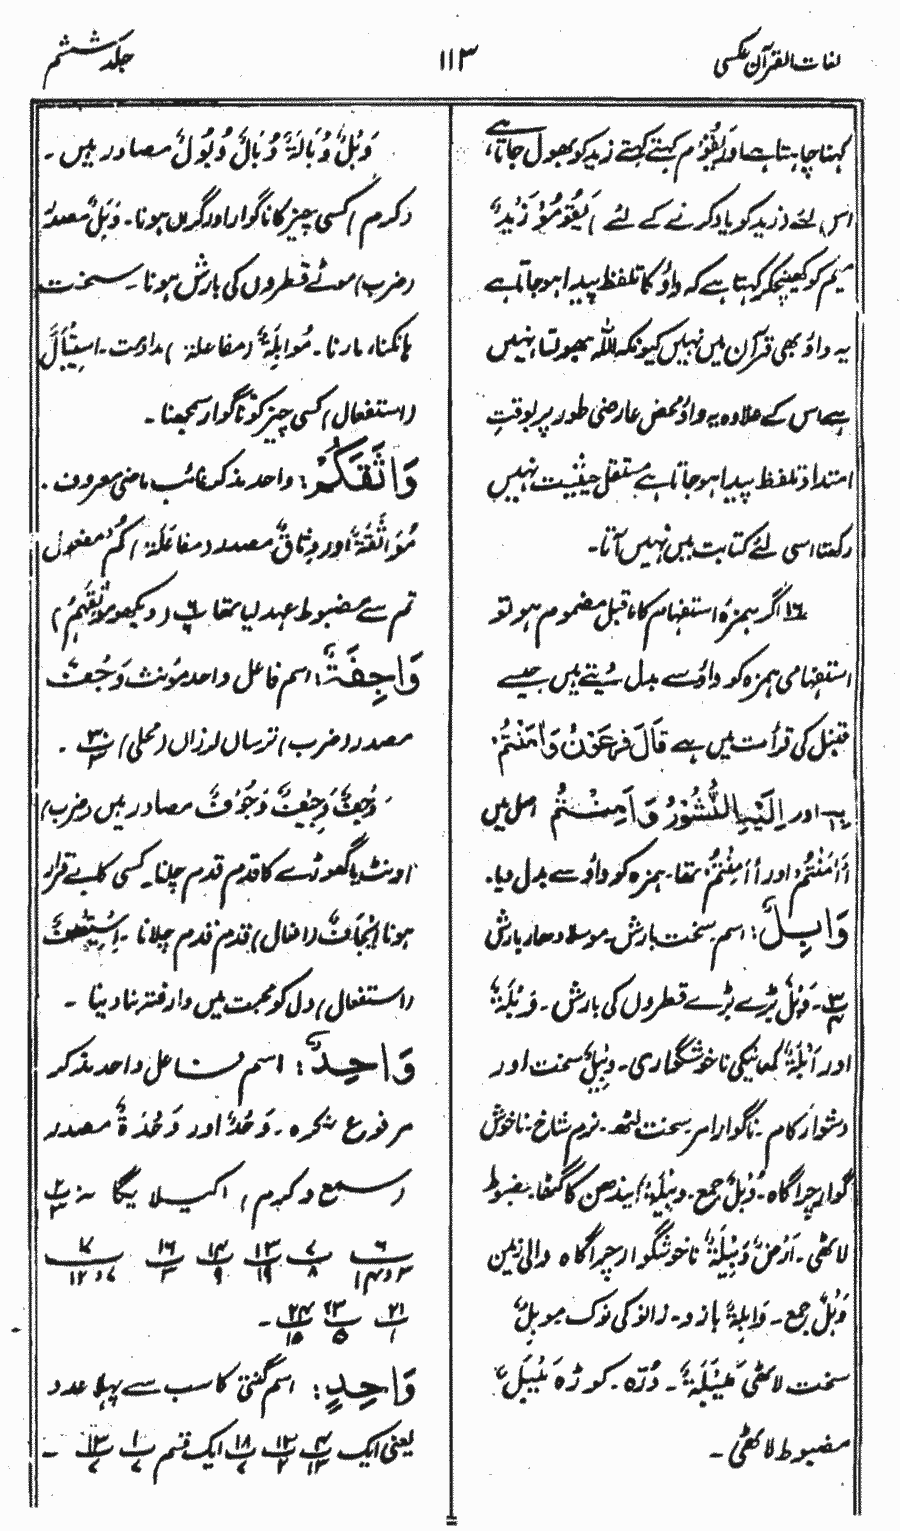 لغات القرآن عکسی
۱۱۳
جلد ششم
کہنا چاہتا ہے اور یَقُوْمُ کہتے کہتے زید کو بھول جاتا ہے،
اس لئے (زید کو یاد کرنے کے لئے) یَقُوْمُوْ زَیْدٌ
میم کو کھینچکر کہتا ہے کہ واؤ کا تلفظ پیدا ہو جاتا ہے
یہ واؤ بھی قرآن میں نہیں کیونکہ اللہ بھولتا نہیں
ہے اس کے علاوہ یہ واؤ محض عارضی طور پر بوقتِ
امتداد تلفظ پیدا ہو جاتا ہے مستقل حیثیت نہیں
رکھتا اسی لئے کتابت میں نہیں آتا۔
۱۶ اگر ہمزہ استفہام کا ماقبل مضموم ہو تو
استفہامی ہمزہ کو واؤ سے بدل دیتے ہیں جیسے
قنبل کی قرأت میں ہے قَالَ فِرْعَوْنُ وَاٰمَنْتُمْ
بہ اور اِلَیْہِ النُّشُوْرُ وَاَمِنْتُمْ اصل میں
أَاٰمَنْتُمْ اور أَأَمِنْتُمْ تھا۔ ہمزہ کو واؤ سے بدل دیا۔
وَابِلٌ: اسم۔ سخت بارش۔ موسلا دھار بارش
۳/۴۔ وَبْلٌ بڑے بڑے قطروں کی بارش۔ وَبْلَۃٌ
اور اَبَلَۃٌ کھانیکی ناخوشگواری۔ وَبِیْلٌ سخت اور
دشوار کام۔ ناگوار امر سخت لٹھ۔ نرم شاخ۔ ناخوش
گوار چراگاہ۔ وُبُلٌ جمع۔ وَبِیْلَۃٌ ایندھن کا گٹھا۔ مضبوط
لاٹھی۔ اَرْضٌ وَبِیْلَۃٌ ناخوشگوار چراگاہ والی زمین
وُبُلٌ جمع۔ وَابِلَۃٌ بازو۔ زانو کی نوک مِوْبَلٌ
سخت لاٹھی مِیْبَلَۃٌ۔ دُرّہ۔ کوڑہ مِیْبَلٌ
مضبوط لاٹھی۔
وَبْلٌ وُبَالَۃٌ وَبَالٌ وُبُوْلٌ مصادر ہیں۔
(کرم) کسی چیز کا ناگوار اور گراں ہونا۔ وَبْلٌ مصدر
(ضرب) موٹے قطروں کی بارش ہونا۔ سخت
ہانکنا، مارنا۔ مُوابَلَۃٌ (مفاعلۃ) مداومت۔ اِسْتِیْبَالٌ
(استفعال) کسی چیز کو ناگوار سمجھنا۔
وَاثَقَكُمْ: واحد مذکر غائب ماضی معروف۔
مُوَاثَقَۃٌ اور وِثَاقٌ مصدر (مفاعلۃ) کُمْ مفعول
تم سے مضبوط عہد لیا تھا ۶ (دیکھو مَوْثِقَہُمْ)
وَاجِفَۃٌ: اسم فاعل واحد مؤنث وَجْفٌ
مصدر (ضرب) ترساں لرزاں (محلی) ۳۰/۳۔
وَجْفٌ، وَجِیْفٌ وُجُوْفٌ مصادر ہیں (ضرب)
اونٹ یا گھوڑے کا قدم قدم چلنا۔ کسی کا بے قرار
ہونا اِیْجَافٌ (افعال) قدم قدم چلانا۔ اِسْتِیْجَافٌ
(استفعال) دل کو محبت میں وارفتہ بنا دینا۔
وَاحِدٌ: اسم فاعل واحد مذکر
مرفوع نکرہ۔ وَحْدٌ اور وَحْدَۃٌ مصدر
(سمع و کرم) اکیلا یگانہ ۲/۳
۶/۳ و ۱۴ ۷/۸ ۱۳/۱۹ ۱۴/۹ ۱۶/۳ ۱۷/۷ و ۱۲
۲۱/۱ ۲۳/۵ ۲۴/۱۵۔
وَاحِدٍ: اسم گنتی کا سب سے پہلا عدد
یعنی ایک ۴/۱۳ ۱۲/۲ ۱۸/۷ ایک قسم ۱/۷ ۱۳/۷۔